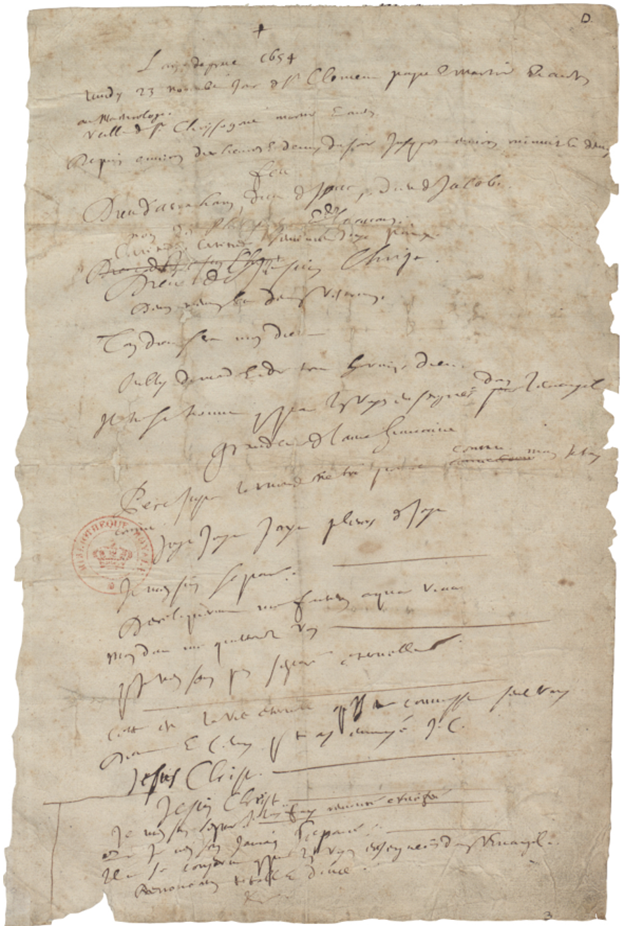 D.
L'an de grace 1654
Lundy 23 novembre jour de St Clement pape et martir et autres
au Martirologe.
Veille de St Chrysogone martir et autres
Depuis environ dix heures et demy du soir jusques environ minuit et demy
Feu
Dieu d'Abraham, Dieu d'Isaac, Dieu de Jacob
non des philosophes et des scavans.
Certitude, certitude, sentiment, joye, paix
Dieu de Jesus Christ
Deum meum et Deum vestrum.
Ton Dieu sera mon Dieu
Oubly du monde et de tout hormis Dieu
Il ne se trouve que par les voyes enseignées dans l'Evangile
Grandeur de l'ame humaine
Pere juste le monde ne t'a point connu mais je t'ay
connu
Joye Joye Joye pleurs de joye
Je m'en suis separé
Dereliquerunt me fontem aquae vivae
mon Dieu me quitterez vous
que je n'en sois pas separé eternellement
Cette est la vie eternelle qu'ils te connoissent seul vray
Dieu et celuy que tu as envoyé J.C.
Jesus Christ
Jesus Christ
je m'en suis separé je l'ay fui renoncé crucifié
que je n'en sois jamais separé
il ne se conserve que par les voyes enseignées dans l'Evangile.
Renonciation totale et douce
BIBLIOTHEQUE ROYALE